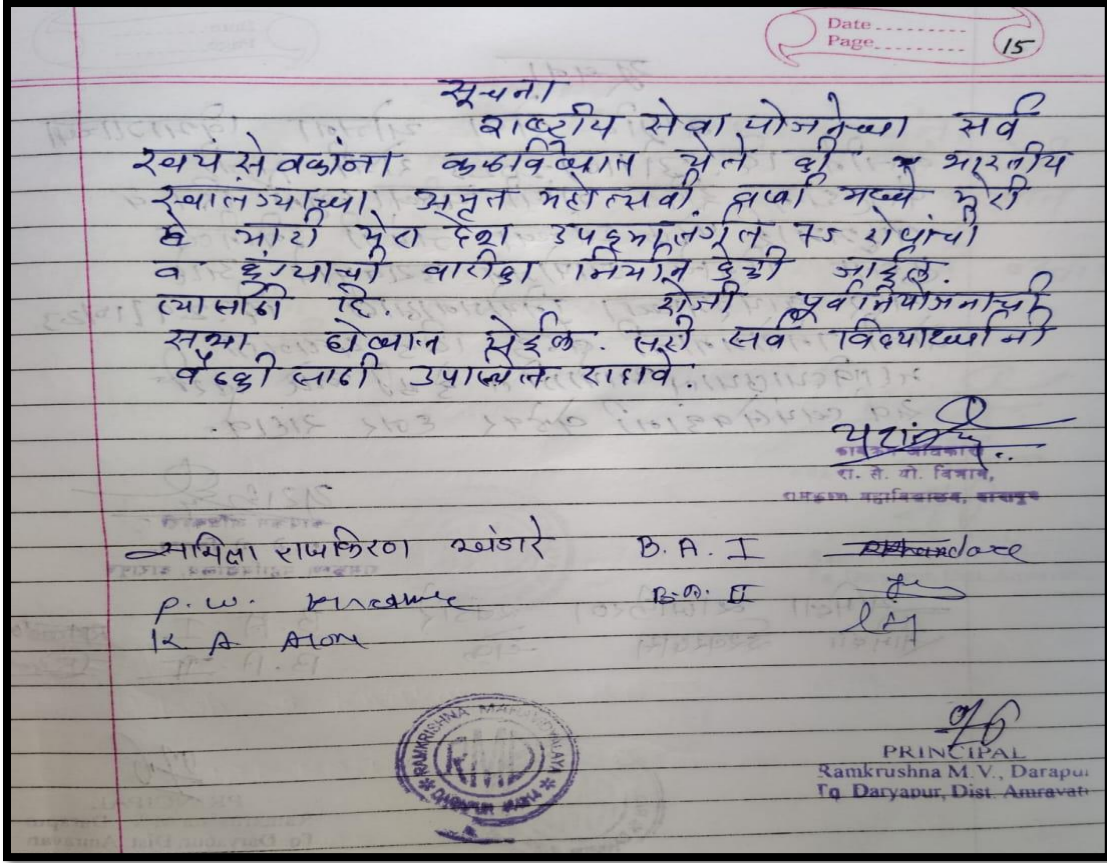 Date
Page
15
सूचना
राष्ट्रीय सेवा योजनेच्या सर्व
स्वयंसेवकांना कळविण्यात येते की भारतीय
स्वातंत्र्याच्या अमृत महोत्सवी वर्षा मध्ये मेरी
माटी मेरा देश उपक्रमांतर्गत ७५ रोपांची
व वाटीका निर्माण केली जाईल.
त्यासाठी दि. रोजी पूर्वनियोजनाची
सभा घेण्यात येईल. तरी सर्व विद्यार्थ्यांनी
बैठकी साठी उपस्थित राहावे.
कार्यक्रम अधिकारी
रा. से. यो. विभाग,
रामकृष्ण महाविद्यालय, दारापुर
राजकिरण खंडारे B. A. I
P. W. B. A. II
K A.
RAMKRISHNA MAHAVIDYALAYA
RMD
DARAPUR
PRINCIPAL
Ramkrushna M.V., Darapur
Tq Daryapur, Dist. Amravati